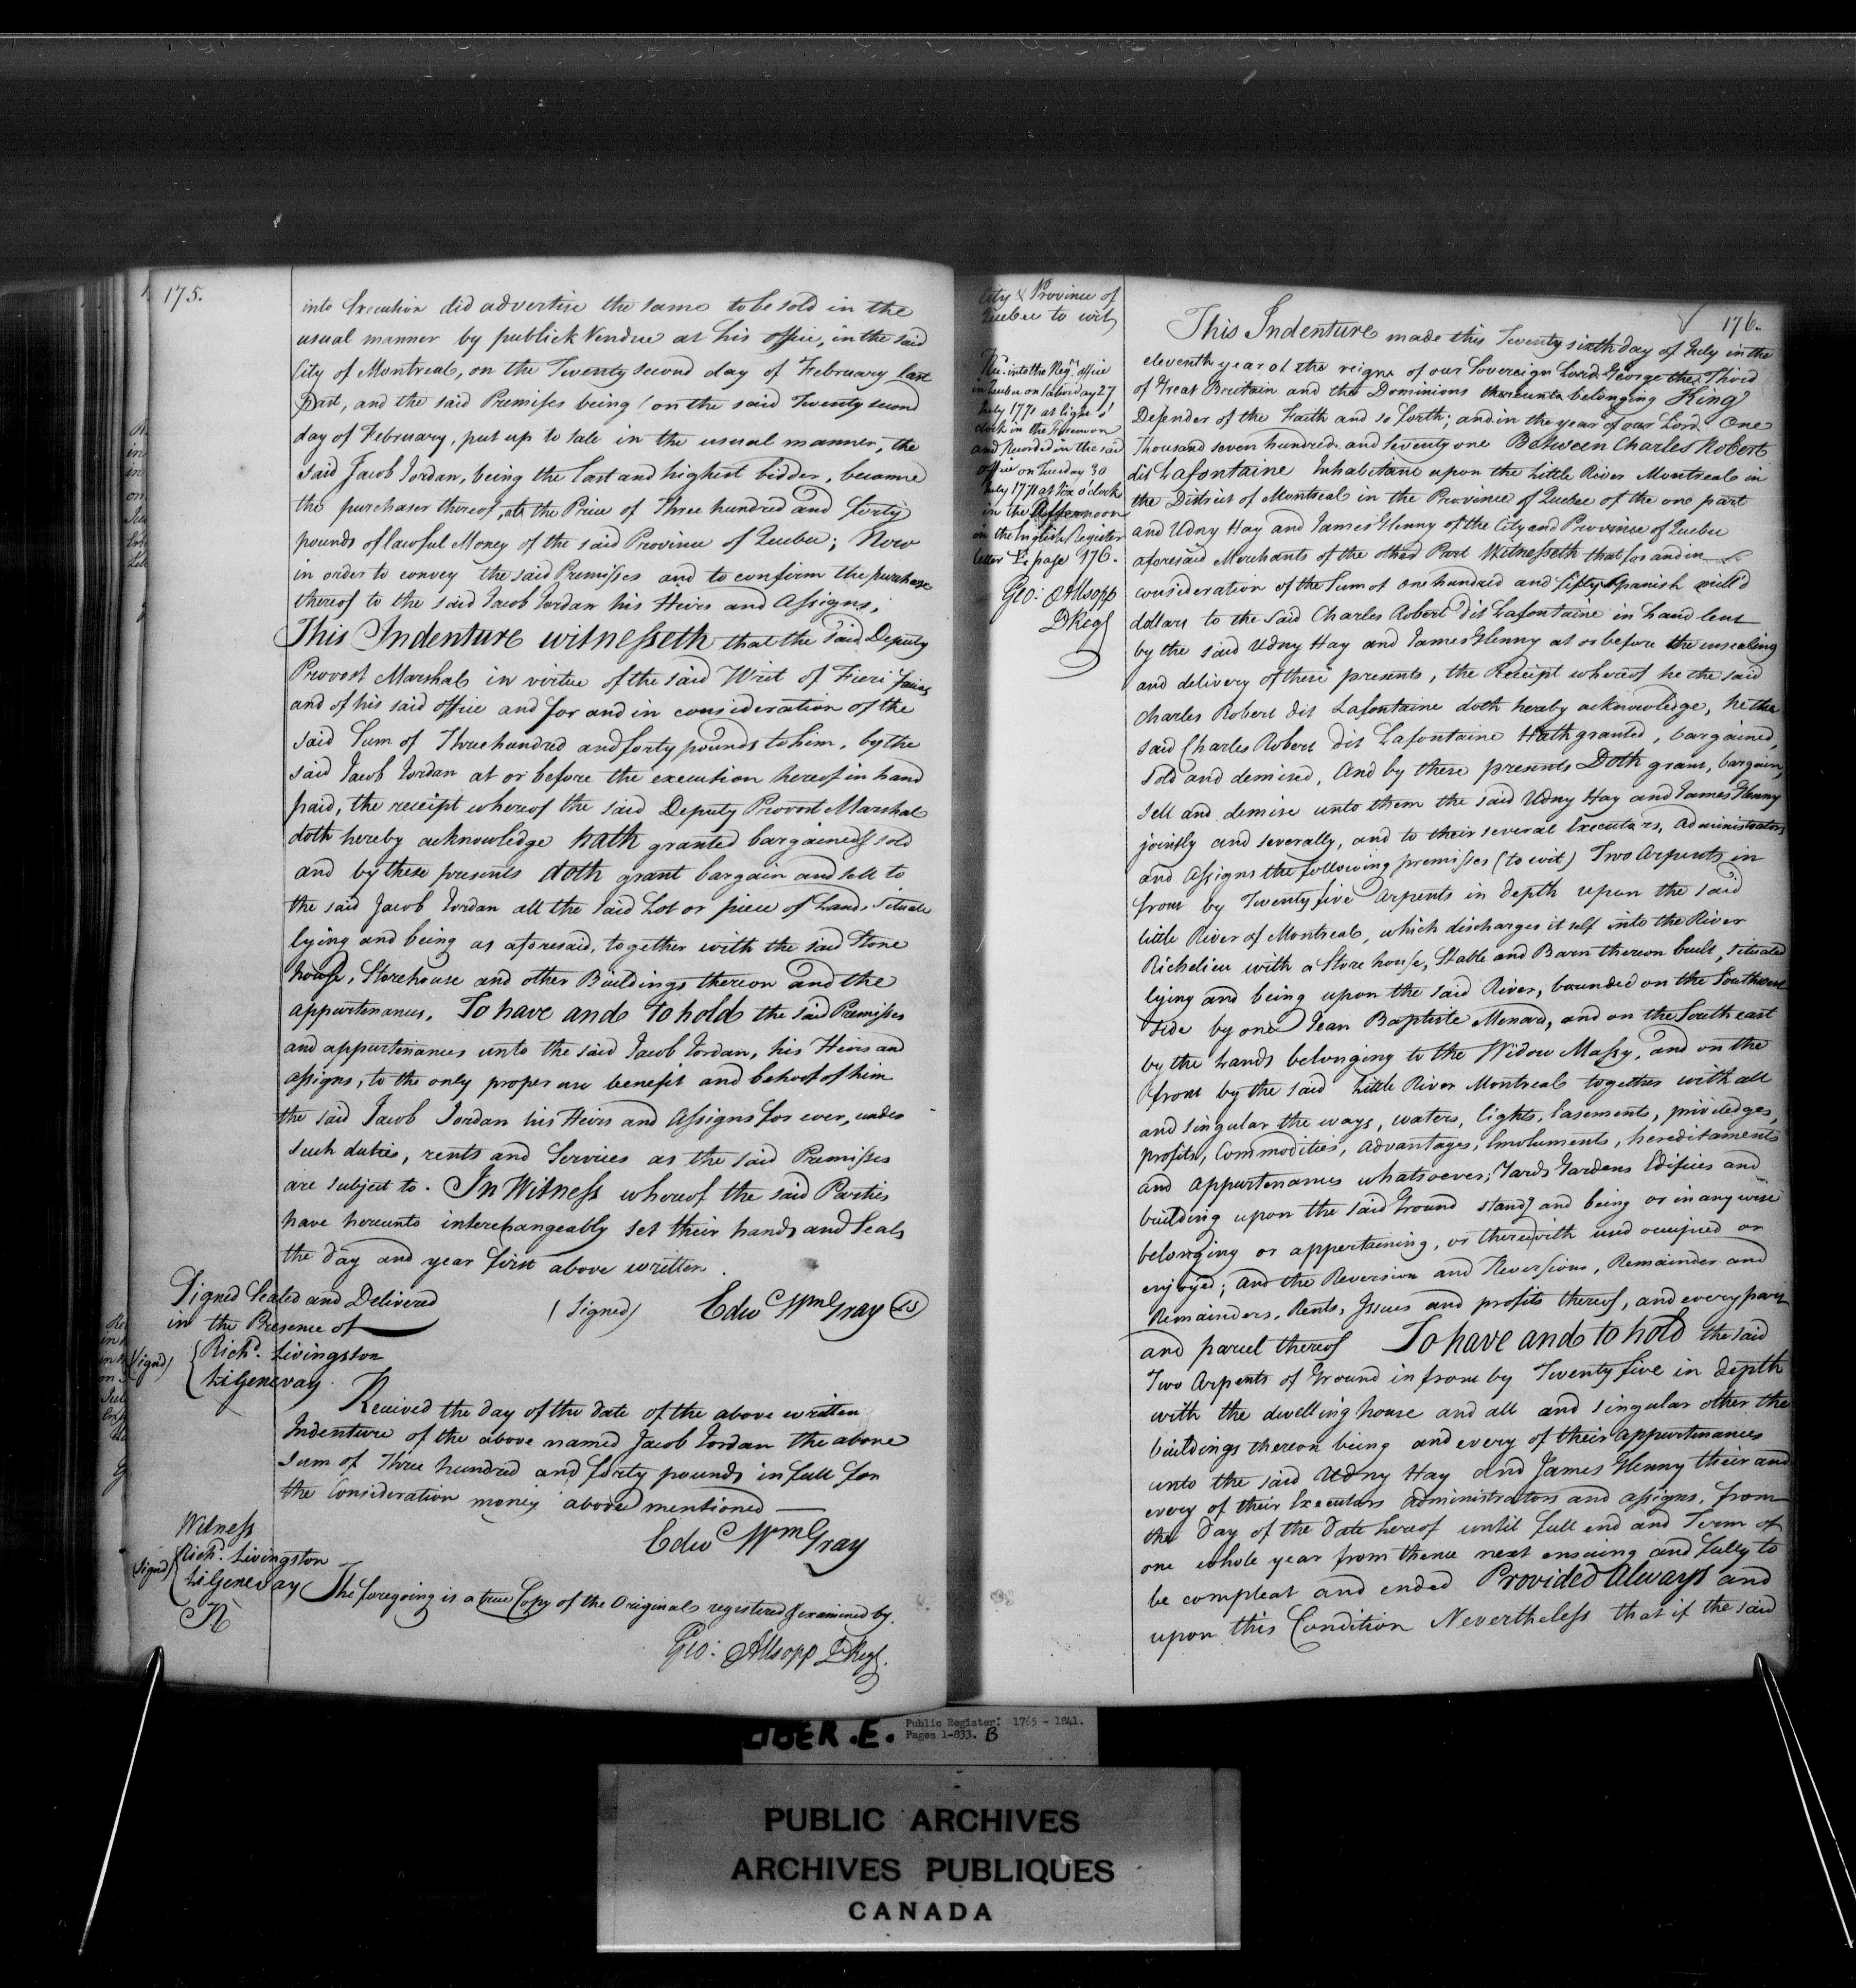 175.
into Execution did advertise the same to be sold in the
usual manner by publick Vendue at his office, in the said
City of Montreal, on the Twenty second day of February last
past, and the said Premisses being (on the said Twenty second
day of February, put up to sale in the usual manner, the
said Jacob Jordan, being the last and highest bidder, became
the purchaser thereof, at the Price of Three hundred and forty
pounds of lawful Money of the said Province of Quebec; Now
in order to convey the said Premisses and to confirm the purchase
thereof to the said Jacob Jordan his Heirs and Assigns,
This Indenture witnesseth that the said Deputy
Provost Marshal in virtue of the said Writ of Fieri facias
and of his said office and for and in consideration of the
said Sum of Three hundred and forty pounds to him, by the
said Jacob Jordan at or before the execution hereof in hand
paid, the receipt whereof the said Deputy Provost Marshal
doth hereby acknowledge hath granted bargained & sold
and by these presents doth grant bargain and sell to
the said Jacob Jordan all the said Lot or piece of Land Situate
lying and being as aforesaid, together with the said Stone
house, Storehouse and other Buildings thereon and the
appurtenances. To have and to hold the said Premisses
and appurtenances unto the said Jacob Jordan, his Heirs and
assigns, to the only proper use benefit and behoof of him
the said Jacob Jordan his Heirs and Assigns for ever, under
such duties, rents and Services as the said Premisses
are subject to. In Witness whereof the said Parties
have hereunto interchangeably set their hands and Seals
the day and year first above written.
Signed Sealed and Delivered
in the Presence of
(Signed) Edwd Wm Gray (LS)
(Signd) { Richd. Livingston
Ls Genevay
Received the day of the date of the above written
Indenture of the above named Jacob Jordan the above
Sum of Three hundred and forty pounds in full for
the Consideration money above mentioned
Edwd Wm Gray
Witness
(Signd) { Richd. Livingston
Ls Genevay
The foregoing is a true Copy of the Original registered & examined by.
Geo: Allsopp DRegr.
176.
City & Province of
Quebec to wit
Rec. into the Regrs. office
in Quebec on Saturday 27
July 1771 at Eight o'
clock in the Forenoon
and Recorded in the said
office on Tuesday 30
July 1771 at Six o'clock
in the Afternoon
in the English Register
letter E: page 176.
Geo: Allsopp
DRegr
This Indenture made this Twenty sixth day of July in the
eleventh year of the reign of our Sovereign Lord George the Third
of Great Britain and the Dominions thereunto belonging King
Defender of the Faith and so forth; and in the year of our Lord One
Thousand seven hundred and seventy one Between Charles Robert
dit Lafontaine Inhabitant upon the Little River Montreal in
the District of Montreal in the Province of Quebec of the one part
and Udny Hay and James Glenny of the City and Province of Quebec
aforesaid Merchants of the other Part Witnesseth that for and in
consideration of the Sum of One hundred and fifty Spanish mill'd
dollars to the said Charles Robert dit Lafontaine in hand lent
by the said Udny Hay and James Glenny at or before the ensealing
and delivery of these presents, the Receipt whereof he the said
Charles Robert dit Lafontaine doth hereby acknowledge, he the
said Charles Robert dit Lafontaine Hath granted, bargained,
Sold and demised, And by these presents Doth grant, bargain,
sell and demise unto them the said Udny Hay and James Glenny
jointly and severally, and to their several Executors, Administrators
and Assigns the following premisses (to wit) Two Arpents in
front by Twenty five Arpents in depth upon the said
little River of Montreal, which discharges it self into the River
Richelieu with a Store house, Stable and Barn thereon built, situated
lying and being upon the said River, bounded on the Southwest
side by one Jean Baptiste Menard, and on the South east
by the Lands belonging to the Widow Massy, and on the
front by the said Little River Montreal together with all
and singular the ways, waters, lights, Easements, priviledges,
profits, Commodities, Advantages, Emoluments, hereditaments
and appurtenances whatsoever; Yards Gardens Edifices and
building upon the said Ground standg and being or in any wise
belonging or appertaining, or therewith used occupied or
enjoyed; and the Reversion and Reversions, Remainder and
Remainders, Rents, Issues and profits thereof, and every part
and parcel thereof To have and to hold the said
Two Arpents of Ground in front by Twenty five in depth
with the dwelling house and all and singular other the
buildings thereon being and every of their appurtenances
unto the said Udny Hay and James Glenny their and
every of their Executors Administrators and assigns, from
the day of the date hereof until full end and Term of
one whole year from thence next ensuing and fully to
be compleat and ended Provided Always and
upon this Condition Nevertheless that if the said
LIBER.E.
Public Register: 1765 - 1841.
Pages 1-833. B
PUBLIC ARCHIVES
ARCHIVES PUBLIQUES
CANADA